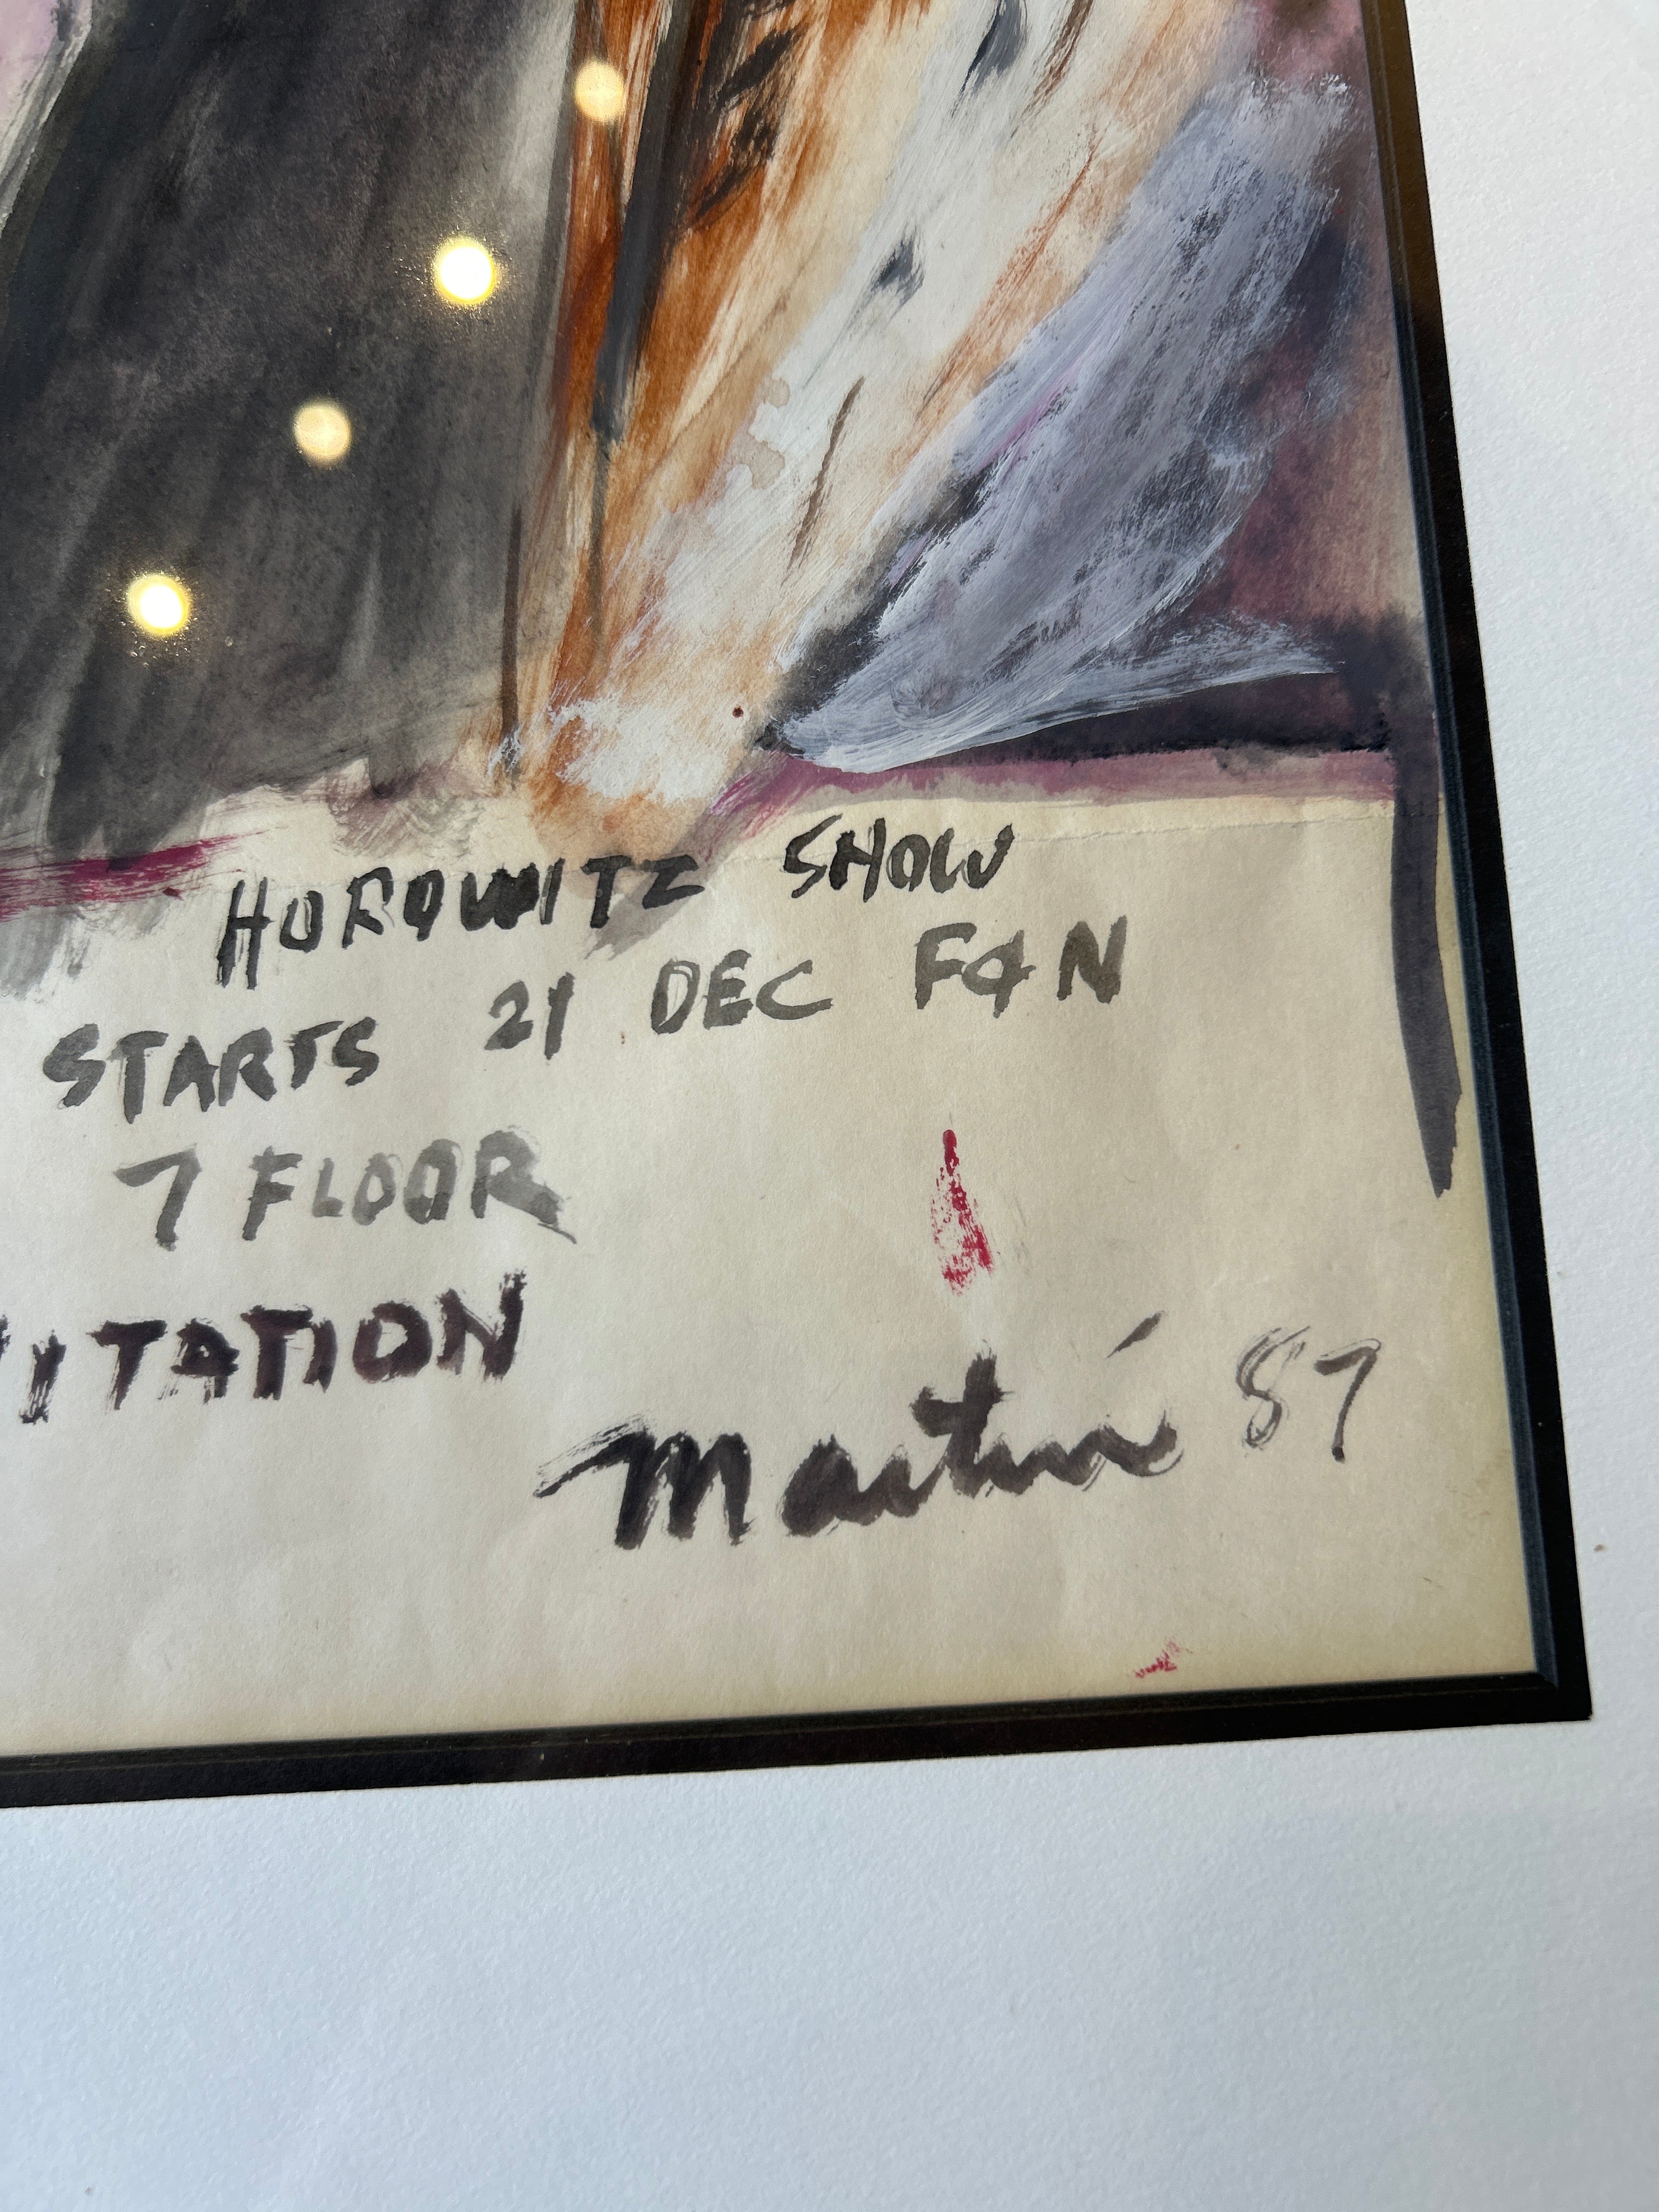 HOROWITZ SHOW
STARTS 21 DEC F&N
7 FLOOR
ITATION
87